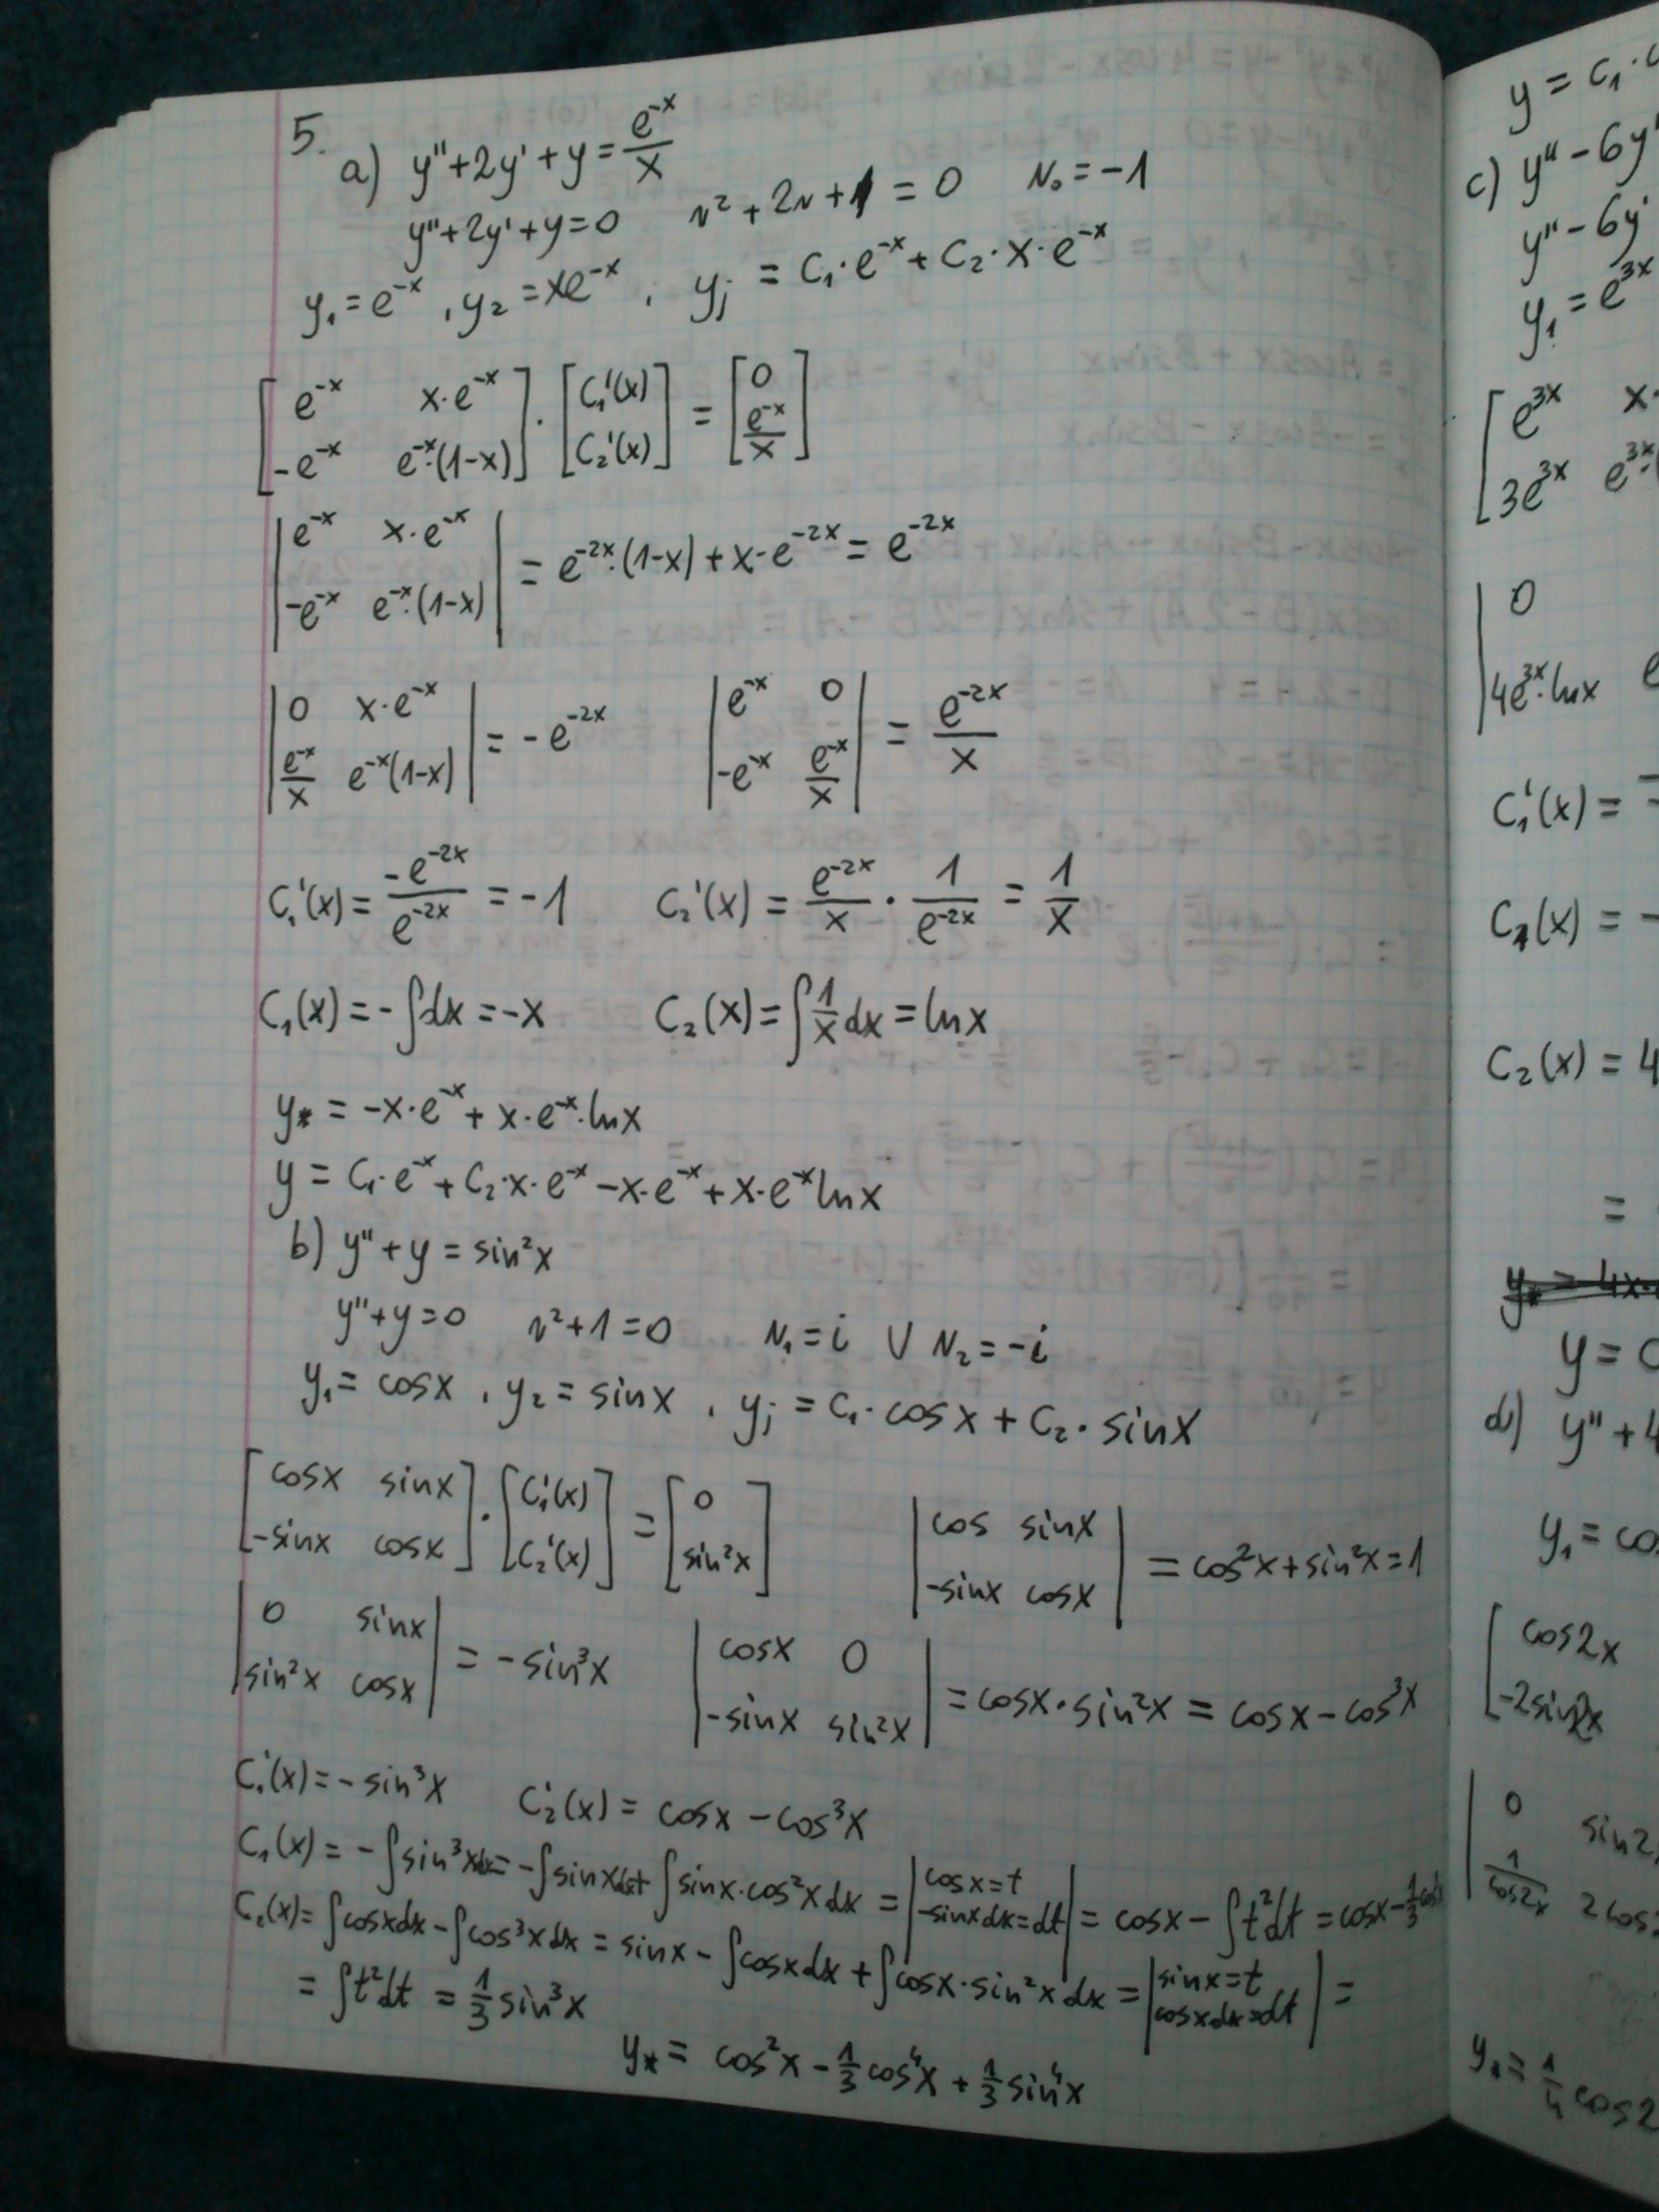 5.
a) y''+2y'+y = e^{-x}/x
y''+2y'+y=0 r²+2r+1=0 r₀=-1
y₁=e^{-x}, y₂=xe^{-x}, yⱼ = C₁·e^{-x}+C₂·x·e^{-x}
[e^{-x} x·e^{-x}; -e^{-x} e^{-x}·(1-x)]·[C₁'(x); C₂'(x)] = [0; e^{-x}/x]
|e^{-x} x·e^{-x}; -e^{-x} e^{-x}·(1-x)| = e^{-2x}·(1-x)+x·e^{-2x} = e^{-2x}
|0 x·e^{-x}; e^{-x}/x e^{-x}(1-x)| = -e^{-2x} |e^{-x} 0; -e^{-x} e^{-x}/x| = e^{-2x}/x
C₁'(x) = -e^{-2x}/e^{-2x} = -1 C₂'(x) = e^{-2x}/x · 1/e^{-2x} = 1/x
C₁(x) = -∫dx = -x C₂(x) = ∫1/x dx = ln x
y* = -x·e^{-x} + x·e^{-x}·ln x
y = C₁·e^{-x} + C₂·x·e^{-x} - x·e^{-x} + x·e^{-x} ln x
b) y''+y = sin²x
y''+y=0 r²+1=0 r₁=i ∨ r₂=-i
y₁=cosx, y₂=sinx, yⱼ = C₁·cosx + C₂·sinx
[cosx sinx; -sinx cosx]·[C₁'(x); C₂'(x)] = [0; sin²x] |cos sinx; -sinx cosx| = cos²x+sin²x=1
|0 sinx; sin²x cosx| = -sin³x |cosx 0; -sinx sin²x| = cosx·sin²x = cosx-cos³x
C₁'(x) = -sin³x C₂'(x) = cosx-cos³x
C₁(x) = -∫sin³xdx = -∫sinxdx + ∫sinx·cos²xdx = |cosx=t; -sinxdx=dt| = cosx - ∫t²dt = cosx - 1/3 cos³x
C₂(x) = ∫cosxdx - ∫cos³xdx = sinx - ∫cosxdx + ∫cosx·sin²xdx = |sinx=t; cosxdx=dt| =
= ∫t²dt = 1/3 sin³x
y* = cos²x - 1/3 cos⁴x + 1/3 sin⁴x
y = C₁·
c) y''-6y'
y''-6y'
y₁=e^{3x}
[e^{3x} x·
3e^{3x} e^{3x}·
|0
4e^{3x}·lnx
C₁'(x) =
C₁(x) = -
C₂(x) = 4
=
y* = 4x·
y =
d) y''+4
y₁=
[cos2x
-2sin2x
|0 sin2
1/cos2x 2cos
y* = 1/4 cos2